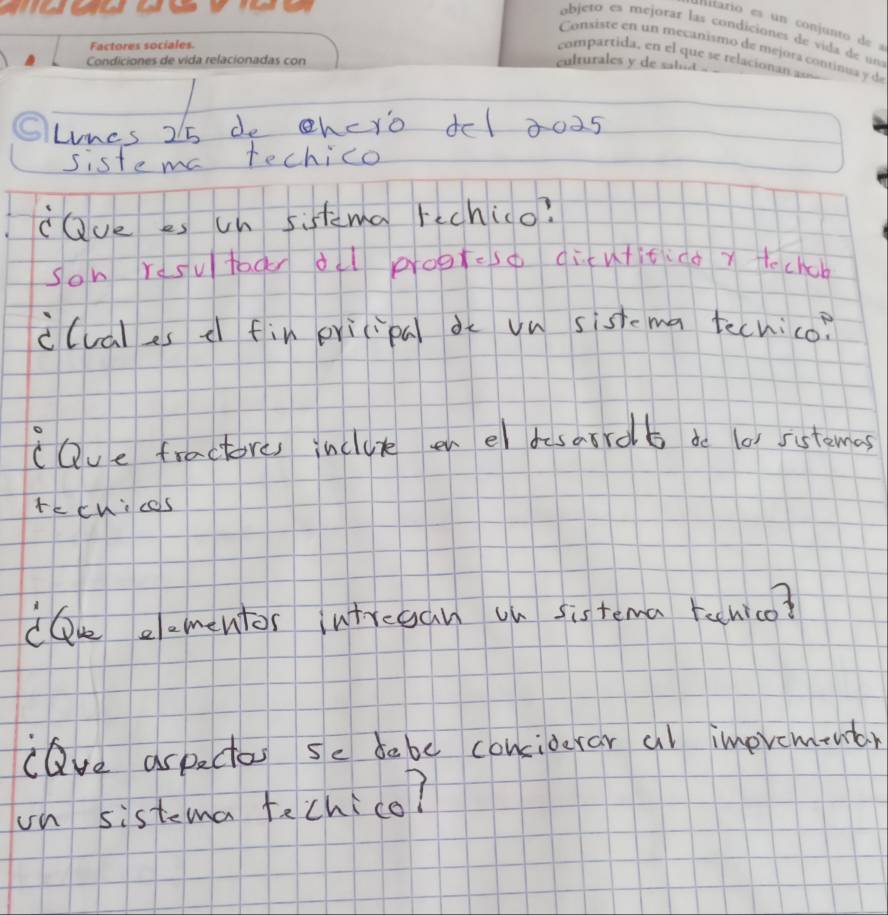 Factores sociales.
Condiciones de vida relacionadas con
unitario es un conjunto de a
objeto es mejorar las condiciones de vida de una
Consiste en un mecanismo de mejora continua y de
compartida, en el que se relacionan
culturales y de salud
Lunes 25 de enero del 2025
sistema techico
¿Que es un sistema techico?
son resultado del progreso cientifico y
¿Cual es el fin pricipal de un sistema tecnico?
¿Que fractores incluye en el desarrollo de los sistemas
tecnicos
¿Que elementos intregan un sistema tecnico?
¿Que aspectos se debe conciderar al imprementar
un sistema techico?